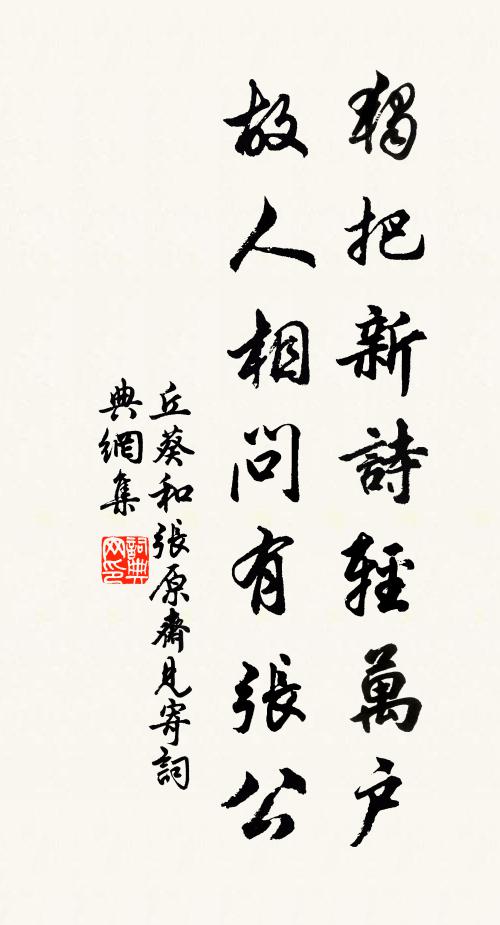 獨把新詩輕萬户
故人相問有張公
丘葵和張原齋見寄詞
典網集
詞典網印